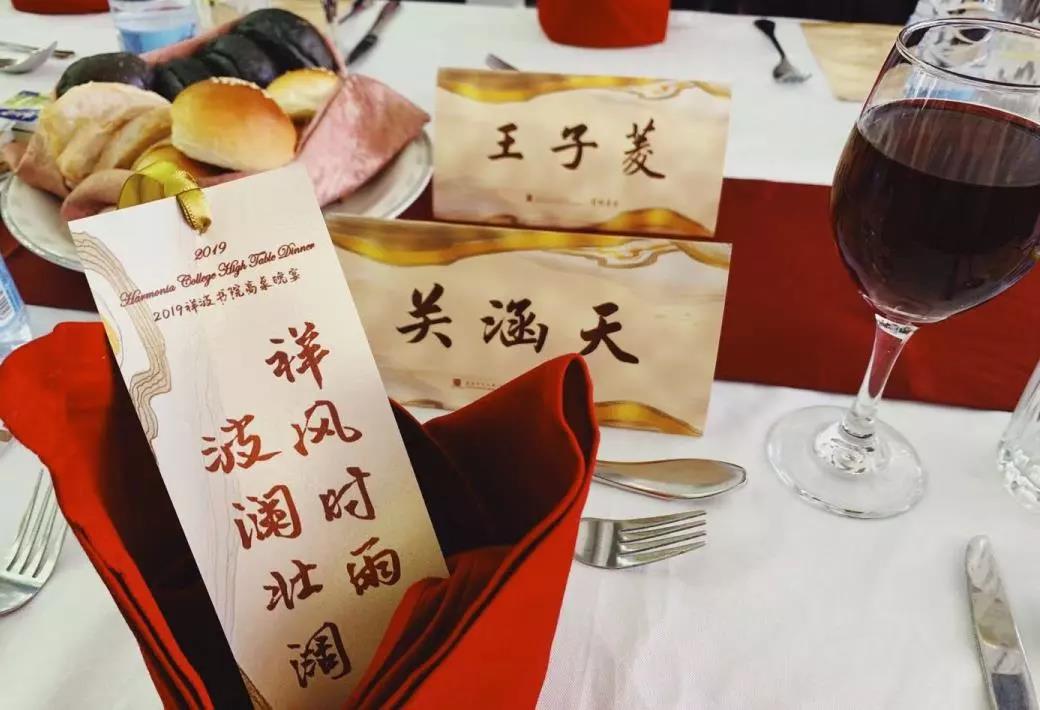 王子菱
关涵天
2019
Harmonia College High Table Dinner
2019祥波书院高桌晚宴
祥风时雨
波澜壮阔